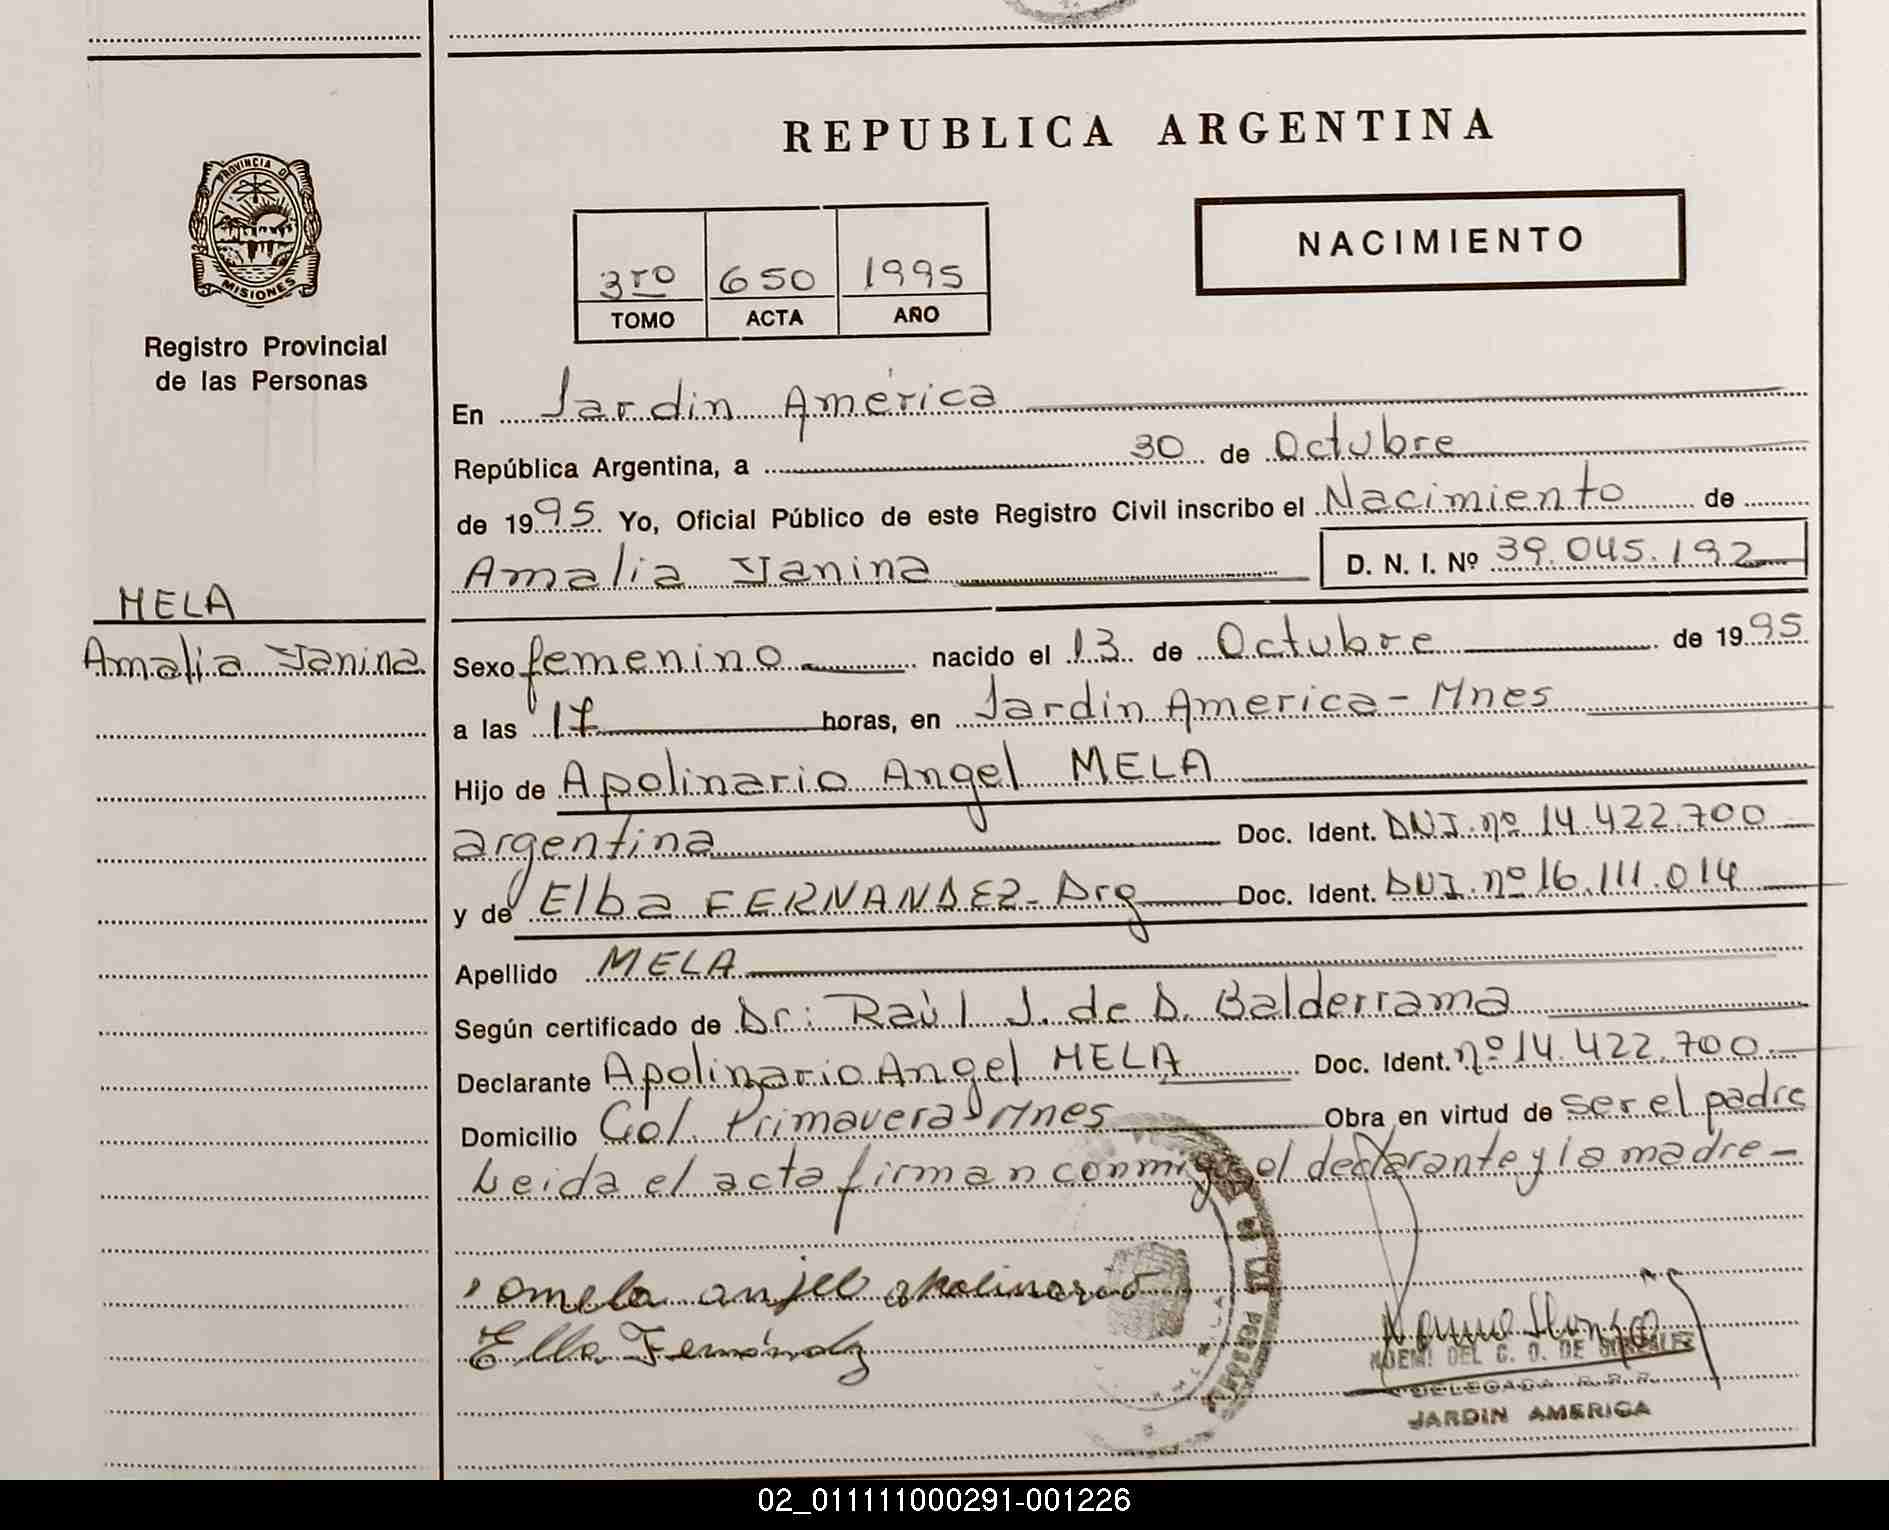 REPUBLICA ARGENTINA
PROVINCIA D
MISIONES
Registro Provincial
de las Personas
NACIMIENTO
3ro 650 1995
TOMO ACTA AÑO
En Jardin América
República Argentina, a 30 de Octubre
de 1995 Yo, Oficial Público de este Registro Civil inscribo el Nacimiento de
Amalia Yanina D. N. I. Nº 39.045.192
MELA
Amalia Yanina
Sexo femenino nacido el 13 de Octubre de 1995
a las 17 horas, en Jardin America - Mnes
Hijo de Apolinario Angel MELA
argentina Doc. Ident. DNI. nº 14.422.700
y de Elba FERNANDEZ - Arg Doc. Ident. DNI. nº 16.111.014
Apellido MELA
Según certificado de Dr: Raúl J. de D. Balderrama
Declarante Apolinario Angel MELA Doc. Ident. nº 14.422.700
Domicilio Col. Primavera - Mnes Obra en virtud de ser el padre
Leida el acta firman conmigo el declarante y la madre -
omela anjel apolinario
Elba Fernández
NOEMI DEL C. D. DE GONZALEZ
DELEGADA R.P.P.
JARDIN AMERICA
02_011111000291-001226